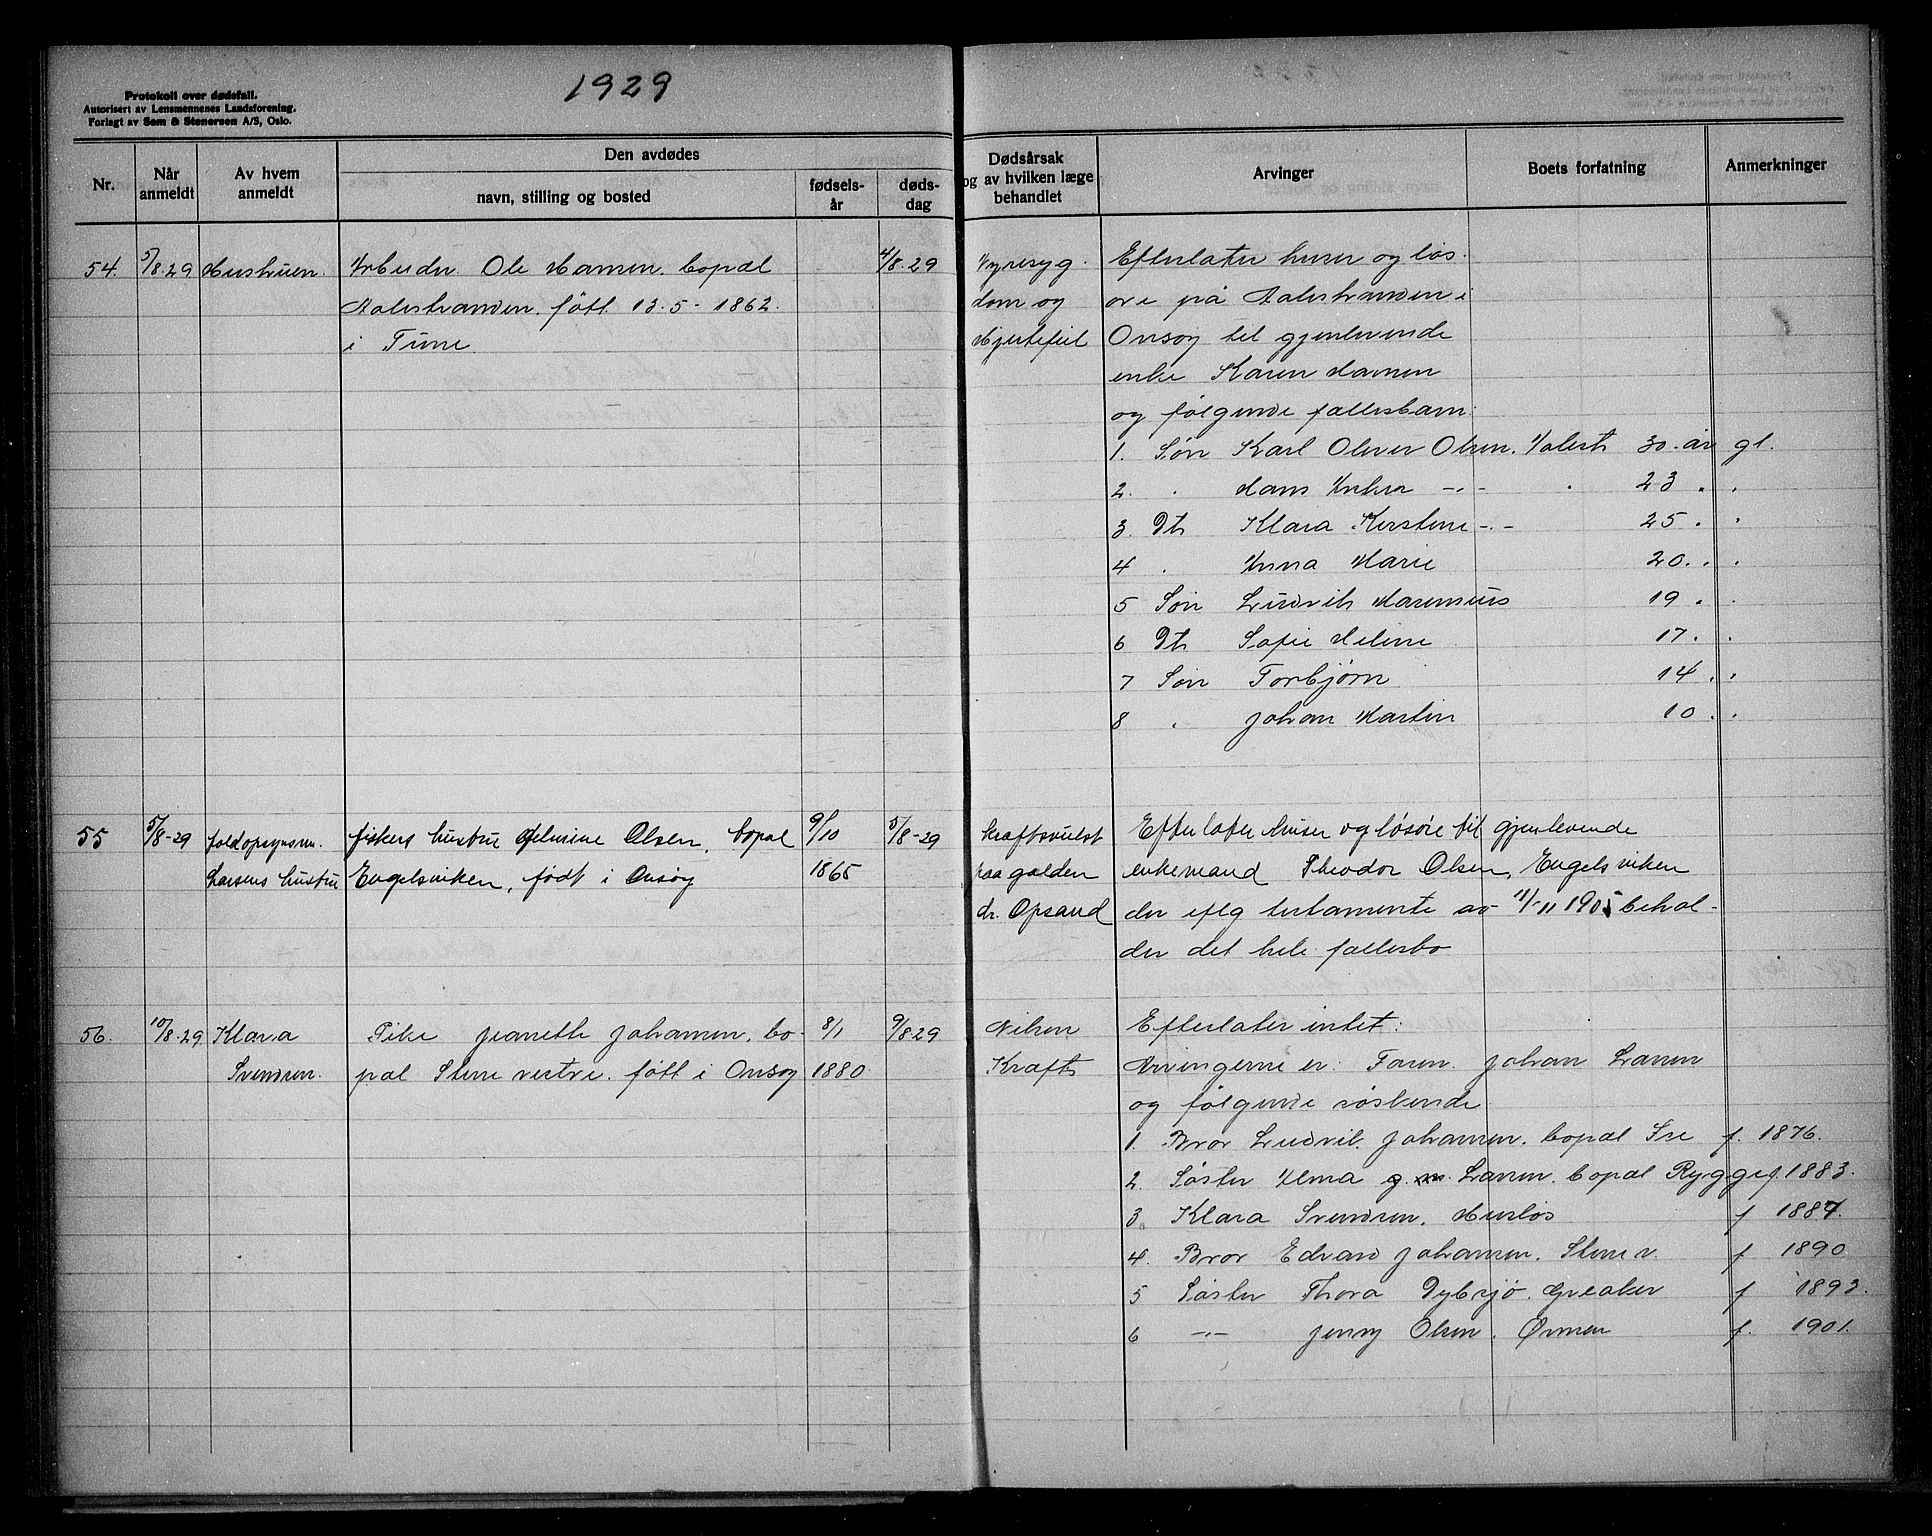 1929
Protokoll over dødsfall.
Autorisert av Lensmennenes Landsforening.
Forlagt av Sem & Stenersen A/S, Oslo.
Nr.
Når anmeldt
Av hvem anmeldt
Den avdødes
navn, stilling og bosted
fødsels-år
døds-dag
Dødsårsak og av hvilken læge behandlet
Arvinger
Boets forfatning
Anmerkninger
54. 5/8.29 Hustruen. Arbeider Ole Hansen. bopæl 4/8.29
Aalestranden. født 13-5-1862.
i Tune.
Nyresyg-
dom og
Hjertefeil
Efterlater huser og løs-
øre på Aalestranden i
Onsøy til gjenlevende
enke Karen Hansen
og følgende fællesbarn:
1. Søn Karl Oliver Olsen. Aalest 30. år gl.
2. " Hans -"- " 23 " "
3. Dt Klara Kirstine -"- 25 " "
4 " Anna Marie 20 " "
5 Søn Ludvik Marensius 19 " "
6 Dt Sofie Helene 17 " "
7 Søn Torbjørn 14 " "
8 " Johan Martin 10 " "
55 5/8-29 foldopsynsm. fiskers hustru Elmine Olsen, bopæl 9/10 5/8-29
Larsens hustru Engelsviken, født i Onsøy 1865
kræftsvulst
paa galden
dr. Opsand
Efterlater huser og løsøre til gjenlevende
enkemand Theodor Olsen, Engelsviken
der iflg testamente av 11/11 1905 behol-
der det hele fællesbo
56. 10/8.29 Klara Pike Jeanette Johansen, bo- 8/1 9/8.29
Svendsen. pæl Stene vestre. født i Onsøy 1880
Nilsen
Kræft
Efterlater intet:
Arvingerne er: Faren Johan Larsen
og følgende søskende
1. Bror Ludvik Johansen. bopæl f. 1876.
2. Søster Alma g. m. Larsen. bopæl Rygge f. 1883.
3. Klara Svendsen. Husløs f 1887.
4. Bror Edvard Johansen. Stene v. f 1890
5 Søster Thora Dybsjø. Greaker f 1893.
6 -"- Jenny Olsen. Ørmen f. 1901.